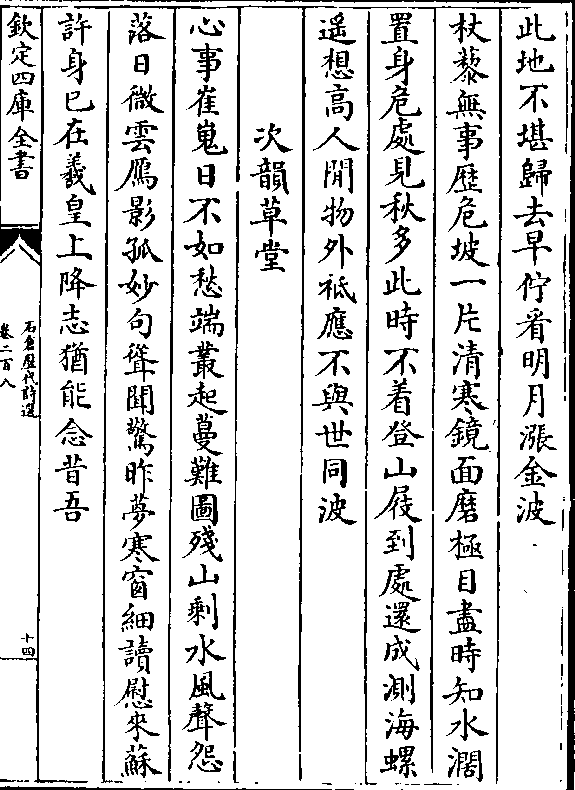 此地不堪歸去早佇看明月漲金波
杖藜無事歴危坡一片清寒鏡面磨極目盡時知水濶
置身危處見秋多此時不着登山屐到處還成測海螺
遥想高人閒物外祗應不與世同波
次韻草堂
心事崔嵬日不如愁端叢起蔓難圖殘山剩水風聲怨
落日微雲鴈影孤妙句聳聞驚昨夢寒窗細讀慰來蘇
許身已在羲皇上降志猶能念昔吾
欽定四庫全書
石倉歴代詩選
卷二百八
十四